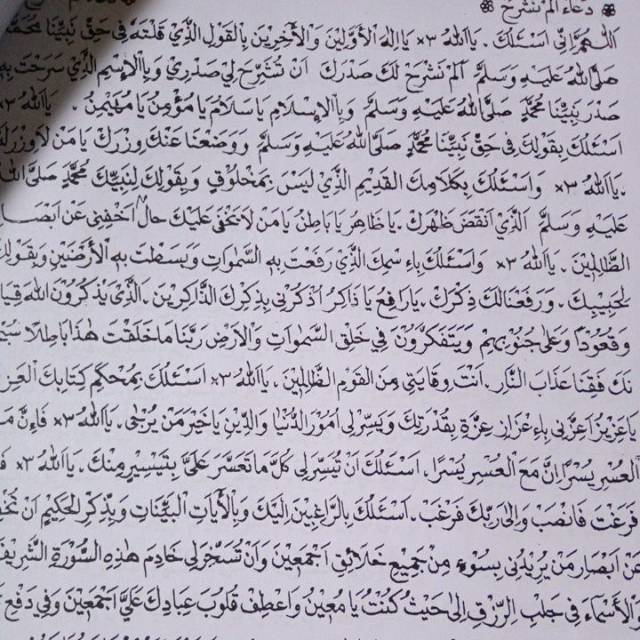 دعاء الم نشرح
اللهم اني اسئلك . ياالله ×٣ يااله الأولين والأخرين بالقول الذي قلته في حق نبينا محمد
صلى الله عليه وسلم الم نشرح لك صدرك ان تشرح لي صدري وباالإسم الذي سرحت به
صدر نبينا محمد صلى الله عليه وسلم وباالإسلام ياسلام يامؤمن يامهيمن . ياالله ×٣
اسئلك بقولك في حق نبينا محمد صلى الله عليه وسلم ووضعنا عنك وزرك يامن لاوزرله
.ياالله ×٣ واسئلك بكلامك القديم الذي ليس بمخلوق وبقولك لنبيك محمد صلى الله
عليه وسلم الذي انقض ظهرك .ياظاهر ياباطن يامن لاتخفى عليك حال اخفني عن ابصار
الظالمين . ياالله ×٣ واسئلك باء سمك الذي رفعت به السموات وبسطت به الأرضين وبقولك
لحبيبك . ورفعنالك ذكرك .يارافع ياذاكر اذكرني بذكرك الذاكرين .الذي يذكرون الله قيا
وقعودا وعلى جنوبهم ويتفكرون في خلق السموات والأرض ربنا ماخلقت هذاباطلا سبحا
نك فقنا عذاب النار .انت وقايتي من القوم الظالمين . ياالله ×٣ اسئلك بمحكم كتابك العز
ياعزيز اعزني باء عزاز عزة بقدرتك ويسرلي امور الدنيا والدين ياخير من يرجى .ياالله ×٣ فإن مع
العسر يسرا ان مع العسر يسرا . اسئلك ان تيسرلي كل ما تعسر علي بتيسير منك . ياالله ×٣
فرغت فانصب والى ربك فرغب . اسئلك بالراغبين اليك وبالأيات البينات وبذكر الحكيم ان
عن ابصار من يريدني بسوء من جميع خلائق اجمعين وان تسخرلي خادم هذه السورة الشريفة
والأسماء في جلب الرزق الى حيث كنت يامعين واعطف قلوب عبادك علي اجمعين وفي دفع